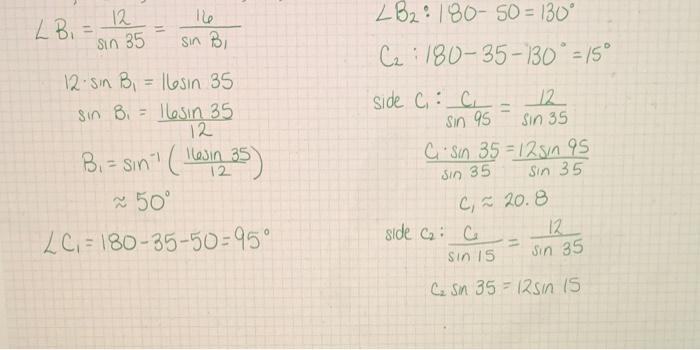 ∠B₁ = 12/sin 35 = 16/sin B₁
12·sin B₁ = 16sin 35
sin B₁ = 16sin 35/12
B₁ = sin⁻¹(16sin 35/12)
≈ 50°
∠C₁ = 180-35-50=95°
∠B₂: 180-50=130°
C₂: 180-35-130°=15°
side C₁: C₁/sin 95 = 12/sin 35
C₁·sin 35/sin 35 = 12sin 95/sin 35
C₁ ≈ 20.8
side C₂: C₂/sin 15 = 12/sin 35
C₂ sin 35 = 12sin 15